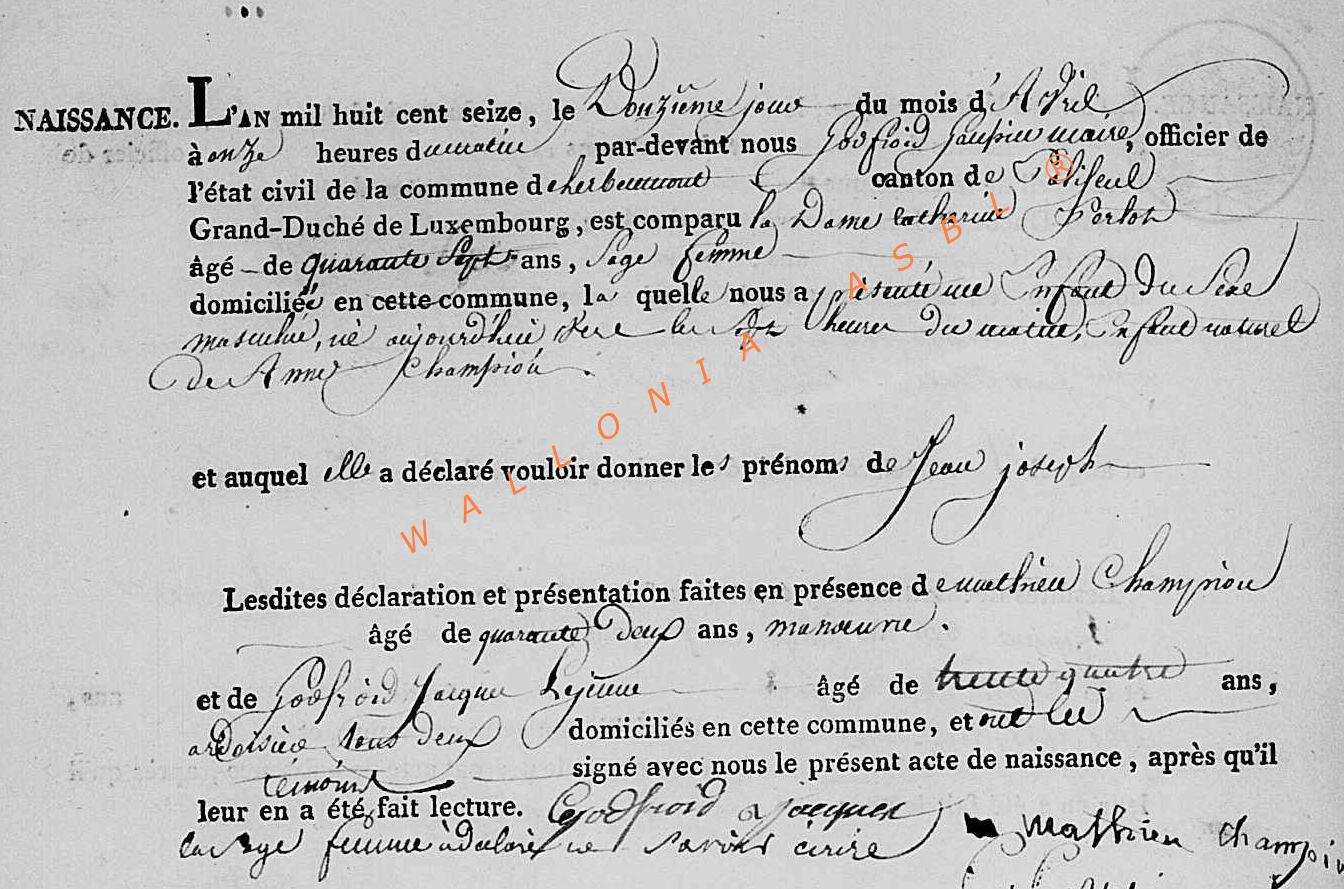 NAISSANCE. L'AN mil huit cent seize, le Douzieme jour du mois d'Avril
à onze heures du matin, par-devant nous Godfroid maire, officier de
l'état civil de la commune d'herbeumont canton de Paliseul
Grand-Duché de Luxembourg, est comparu la Dame catherine Perlot
âgé de quarante Sept ans, Sage femme
domiciliée en cette commune, la quelle nous a présenté un Enfant Du Sexe
masculin, né aujourd'hui vers les heures Du matin, Enfant naturel
De Anne Champion.
et auquel elle a déclaré vouloir donner les prénoms de Jean joseph
Lesdites déclaration et présentation faites en présence de mathieu Champion
âgé de quarante Deux ans, manoeuvre.
et de Godfroid Jacques Lejeune âgé de trente quatre ans,
ardoisier tous deux domiciliés en cette commune, et ont
témoins signé avec nous le présent acte de naissance, après qu'il
leur en a été fait lecture. Godfroid jacques
la Sage femme a declaré ne Savoir écrire Mathieu Champion
WALLONIA ASBL ®